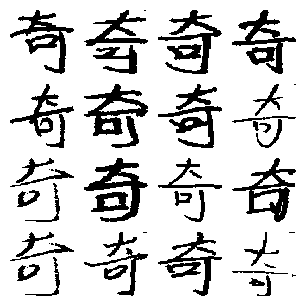 奇奇奇奇
奇奇奇奇
奇奇奇奇
奇奇奇奇